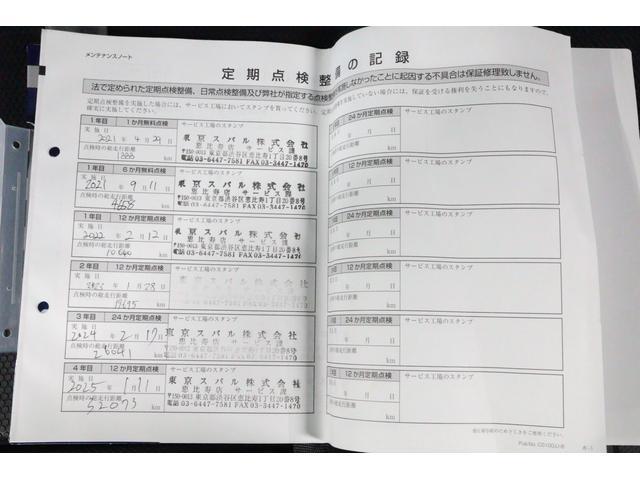 メンテナンスノート
定期点検整備の記録
法で定められた定期点検整備、日常点検整備及び弊社が指定する点検整備
実施しなかったことに起因する不具合は保証修理致しません。
定期点検整備を実施した場合には、サービス工場においてスタンプを貰ってください。定期
確実に実施してください。
実施していない場合には、保証を受ける権利を失うことにもなりますので、
1年目 1か月無料点検
サービス工場のスタンプ
実施日
2021年4月29日
点検時の総走行距離
1333 km
東京スバル株式会社
恵比寿店 サービス課
〒150-0013 東京都渋谷区恵比寿1丁目20番8号
電話03-6447-7581 FAX03-3447-1470
1年目 6か月無料点検
サービス工場のスタンプ
実施日
2021年9月11日
点検時の総走行距離
km
東京スバル株式会社
恵比寿店 サービス課
〒150-0013 東京都渋谷区恵比寿1丁目20番8号
電話03-6447-7581 FAX03-3447-1470
1年目 12か月定期点検
サービス工場のスタンプ
実施日
2022年2月12日
点検時の総走行距離
km
東京スバル株式会社
恵比寿店 サービス課
〒150-0013 東京都渋谷区恵比寿1丁目20番8号
電話03-6447-7581 FAX03-3447-1470
2年目 12か月定期点検
サービス工場のスタンプ
実施日
年1月28日
点検時の総走行距離
km
3年目 24か月定期点検
サービス工場のスタンプ
実施日
2024年2月17日
点検時の総走行距離
26041 km
東京スバル株式会社
恵比寿店 サービス課
〒150-0013 東京都渋谷区恵比寿1丁目20番8号
電話03-6447-7581 FAX03-3447-1470
4年目 12か月定期点検
サービス工場のスタンプ
実施日
2025年1月11日
点検時の総走行距離
32073 km
東京スバル株式会社
恵比寿店 サービス課
〒150-0013 東京都渋谷区恵比寿1丁目20番8号
電話03-6447-7581 FAX03-3447-1470
24か月定期点検
サービス工場のスタンプ
年 月 日
km
12か月定期点検
サービス工場のスタンプ
年 月 日
km
24か月定期点検
サービス工場のスタンプ
年 月 日
km
12か月定期点検
サービス工場のスタンプ
年 月 日
km
24か月定期点検
サービス工場のスタンプ
年 月 日
km
12か月定期点検
サービス工場のスタンプ
年 月 日
km